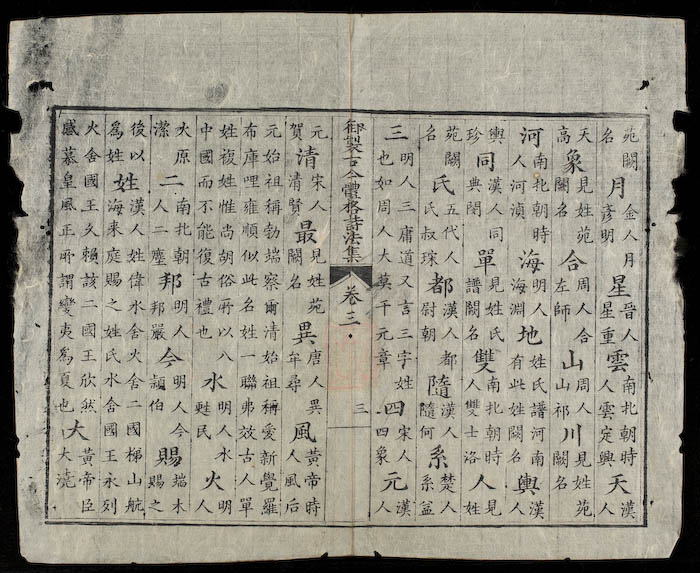 苑闕名月金人月彥明星晋人星重雲南北朝時人雲定興天漢人
天高象見姓苑闕名合周人合左師山周人山祁川見姓苑闕名
河南北朝時人河湞海明人海淵地姓氏譜河南有此姓闕名輿漢人
輿珍同漢人同典單見姓氏譜闕名雙南北朝時人雙士洛人見姓
苑闕名氏五代人氏叔琮都漢人都尉朝隨漢人隨何系楚人系益
三明人三庸道又言三字姓也如周人大莫千元章四宋人四象元漢人
御製古今體格詩法集 卷三 三
元賀清宋人清賢最見姓苑闕名異唐人異牟尋風黃帝時人風后
元始祖稱勃端察爾清始祖稱愛新覺羅布庫哩雍順似此名姓一聯弗放古人單
姓複姓惟尚胡俗所以八中國而不能復古禮也水明人水甦民火明人
火原潔二南北朝人二塵邦明人邦嚴今明人今頴伯賜端木賜之
後以為姓姓漢人姓偉水舍火舍二國梯山航海來庭賜之姓氏水舍國王永列
火舍國王久賴該二國王欣然感慕皇風正所謂變夷為夏也大黃帝臣大撓